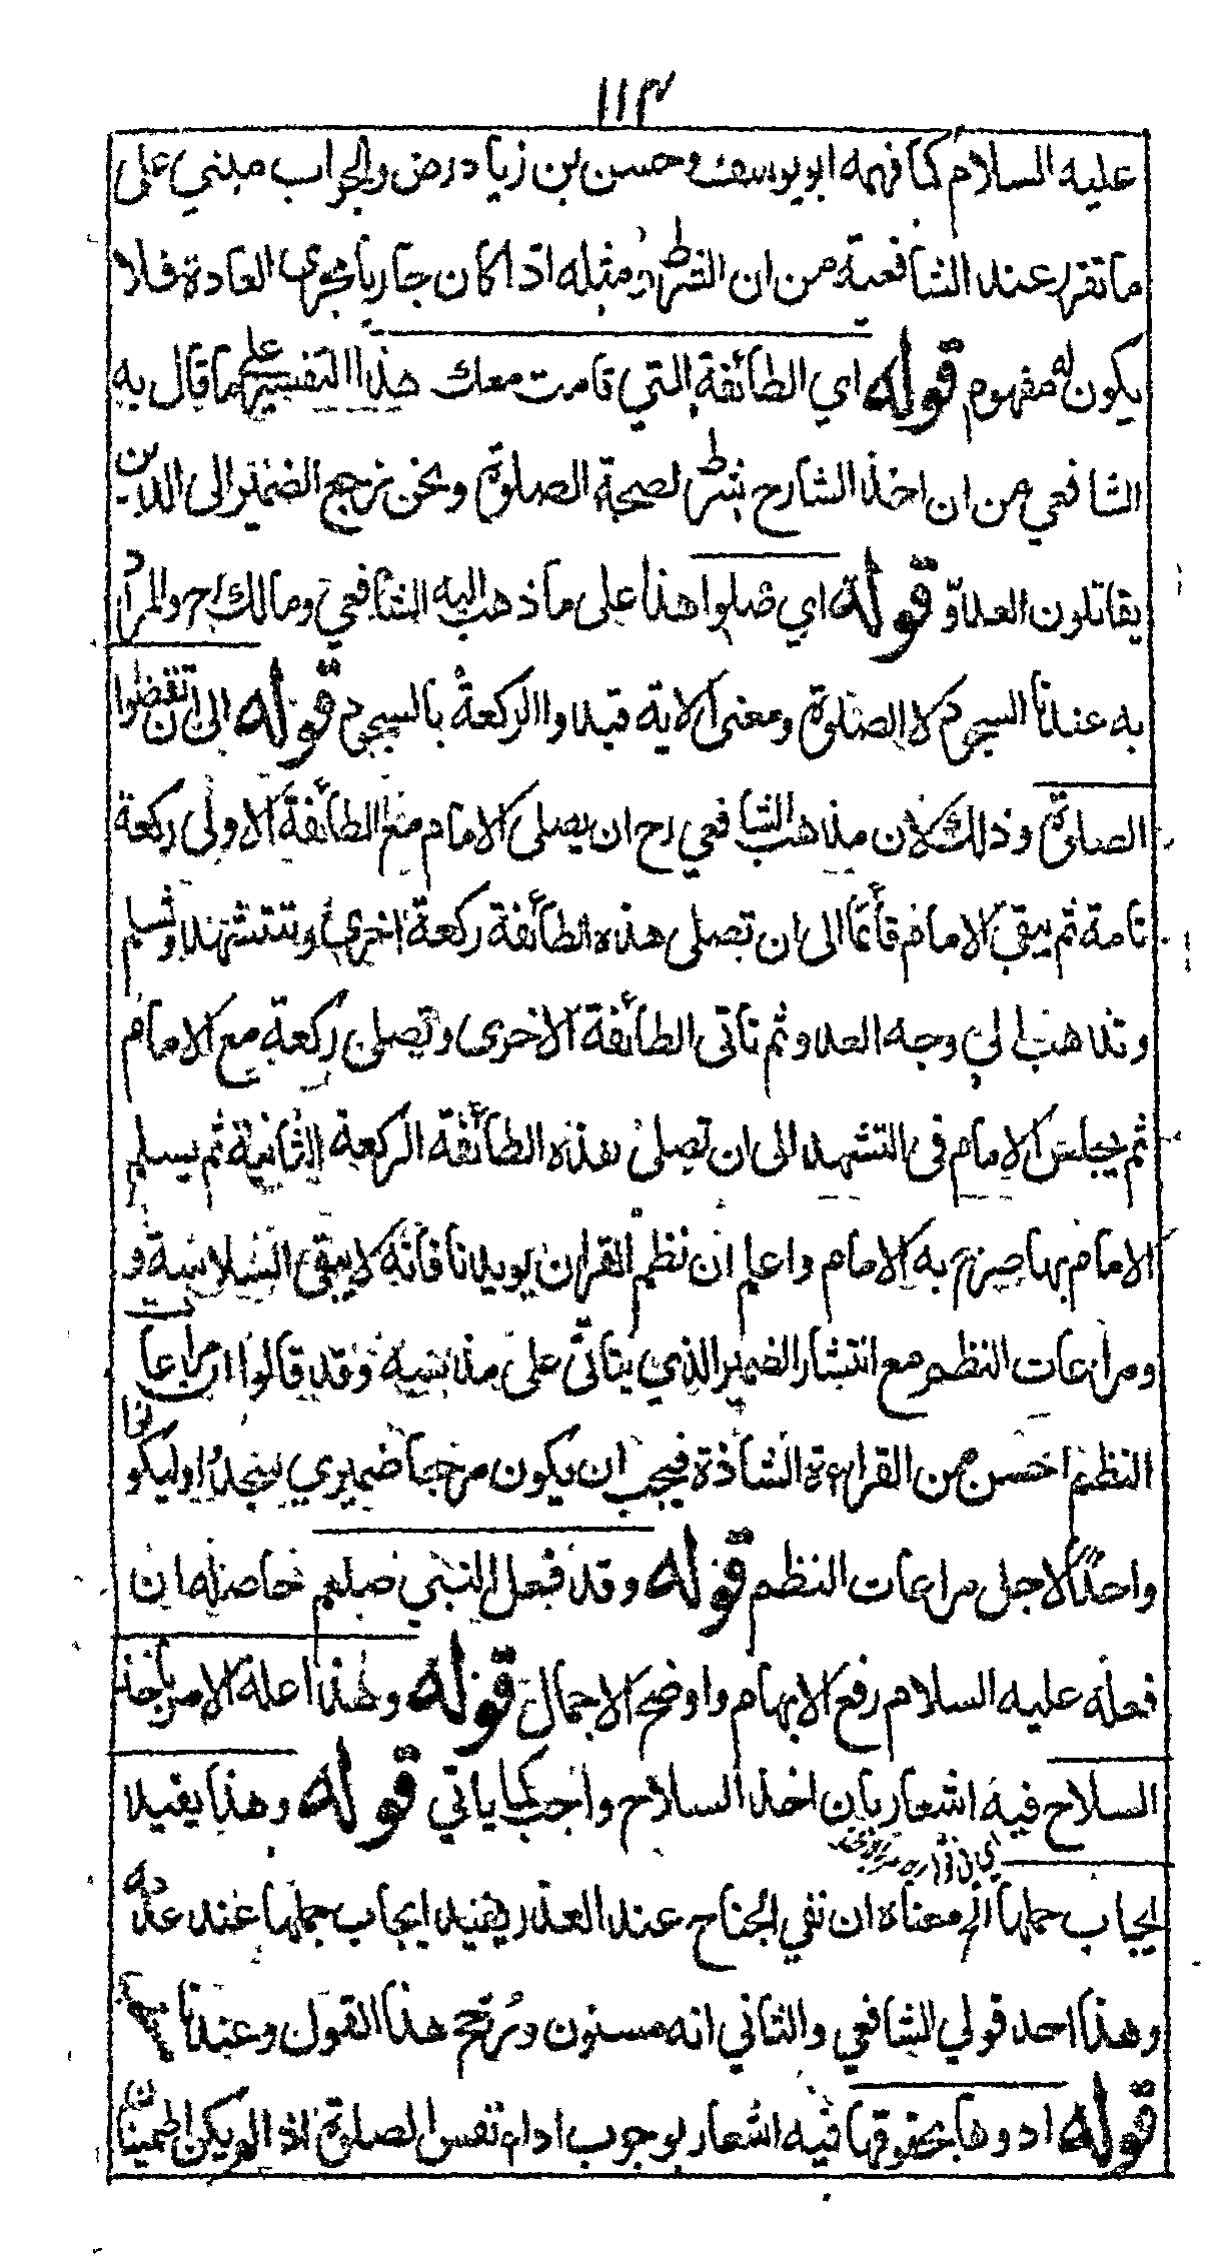 ١١٣
عليه السلام كما فهمه ابو يوسف وحسن بن زياد رض والجواب مبني على
ما تقرر عند الشافعية من ان الشرط ومثله اذا كان جاريا مجرى العادة فلا
يكون له مفهوم قوله اي الطائفة التي قامت معك هذا التفسير على ما قال به
الشافعي من ان اخذ الشارح شرط لصحة الصلوة ونحن نرجع الضمير الى الذين
يقاتلون العدو قوله اي صلوا هذا على ما ذهب اليه الشافعي ومالك رح والمراد
به عندنا السجود لا الصلوة ومعنى الاية قيدوا الركعة بالسجود قوله الى ان تقضوا
الصلوة وذلك لان مذهب الشافعي رح ان يصلى الامام مع الطائفة الاولى ركعة
تامة ثم يبقى الامام قائما الى ان تصلى هذه الطائفة ركعة اخرى وتتشهد وتسلم
وتذهب الى وجه العدو ثم تاتى الطائفة الاخرى وتصلى ركعة مع الامام
ثم يجلس الامام فى التشهد الى ان تصلى هذه الطائفة الركعة الثانية ثم يسلم
الامام بها صرح به الامام واعلم ان نظم القران يويدنا فانه لا يبقى السلاسة و
ومراعات النظم مع انتشار الضمير الذي يتاتى على مذهبه وقد قالوا ان مراعات
النظم احسن من القراءة الشاذة فيجب ان يكون مرجعا ضميري سجدوا وليكونوا
واحدا لاجل مراعات النظم قوله وقد فعل النبي صلعم حاصله ان
فعله عليه السلام رفع الابهام واوضح الاجمال قوله ولهذا علة الامر باخذ
السلاح فيه اشعار بان اخذ السلاح واجب كما ياتي قوله وهذا يفيد
ايجاب حملها الخ معناه ان نفي الجناح عند العذر يفيد ايجاب حملها عند عدمه
وهذا احد قولي الشافعي والثاني انه مسنون ورجح هذا القول وعندنا
قوله ادوها بحقوقها فيه اشعار بوجوب اداء نفس الصلوة اذا لم يكن اطمينان